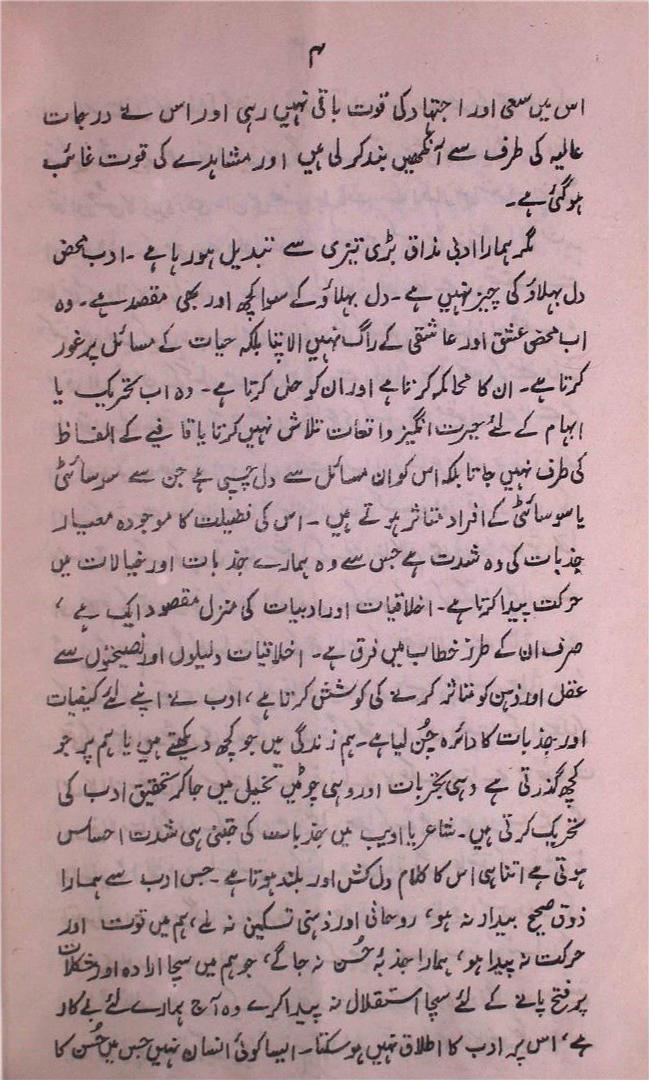 ۴
اس میں سعی اور اجتہاد کی قوت باقی نہیں رہی اور اس نے درجات
عالیہ کی طرف سے آنکھیں بند کر لی ہیں اور مشاہدے کی قوت غائب
ہو گئی ہے۔
مگر ہمارا ادبی مذاق بڑی تیزی سے تبدیل ہو رہا ہے ۔ ادب محض
دل بہلاؤ کی چیز نہیں ہے۔ دل بہلاؤ کے سوا کچھ اور بھی مقصد ہے۔ وہ
اب محض عشق اور عاشقی کے راگ نہیں الاپتا بلکہ حیات کے مسائل پر غور
کرتا ہے۔ ان کا محاکمہ کرتا ہے اور ان کو حل کرتا ہے۔ وہ اب تحریک یا
ابہام کے لئے حیرت انگیز واقعات تلاش نہیں کرتا یا قافیے کے الفاظ
کی طرف نہیں جاتا بلکہ اس کو ان مسائل سے دلچسپی ہے جن سے سوسائٹی
یا سوسائٹی کے افراد متاثر ہوتے ہیں ۔ اس کی فضیلت کا موجودہ معیار
جذبات کی وہ شدت ہے جس سے وہ ہمارے جذبات اور خیالات میں
حرکت پیدا کرتا ہے۔ اخلاقیات اور ادبیات کی منزل مقصود ایک ہے ،
صرف ان کے طرز خطاب میں فرق ہے۔ اخلاقیات دلیلوں اور نصیحتوں سے
عقل اور ذہن کو متاثر کرنے کی کوشش کرتا ہے، ادب نے اپنے لئے کیفیات
اور جذبات کا دائرہ چُن لیا ہے۔ ہم زندگی میں جو کچھ دیکھتے ہیں یا ہم پر جو
کچھ گذرتی ہے وہی تجربات اور وہی چوٹیں تخیل میں جا کر تخلیق ادب کی
تحریک کرتی ہیں۔ شاعر یا ادیب میں جذبات کی جتنی ہی شدت احساس
ہوتی ہے اتنا ہی اس کا کلام دل کش اور بلند ہوتا ہے۔ جس ادب سے ہمارا
ذوق صحیح بیدار نہ ہو، روحانی اور ذہنی تسکین نہ ملے، ہم میں قوت اور
حرکت نہ پیدا ہو، ہمارا جذبۂ حُسن نہ جاگے، جو ہم میں سچا ارادہ اور مشکلات
پر فتح پانے کے لئے سچا استقلال نہ پیدا کرے وہ آج ہمارے لئے بے کار
ہے، اس پر ادب کا اطلاق نہیں ہو سکتا۔ ایسا کوئی انسان نہیں جس میں حُسن کا